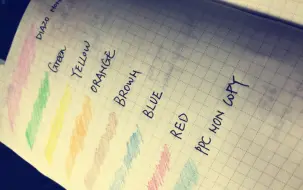 Green
YELLOW
ORANGE
BROWN
BLUE
RED
PPC NON COPY